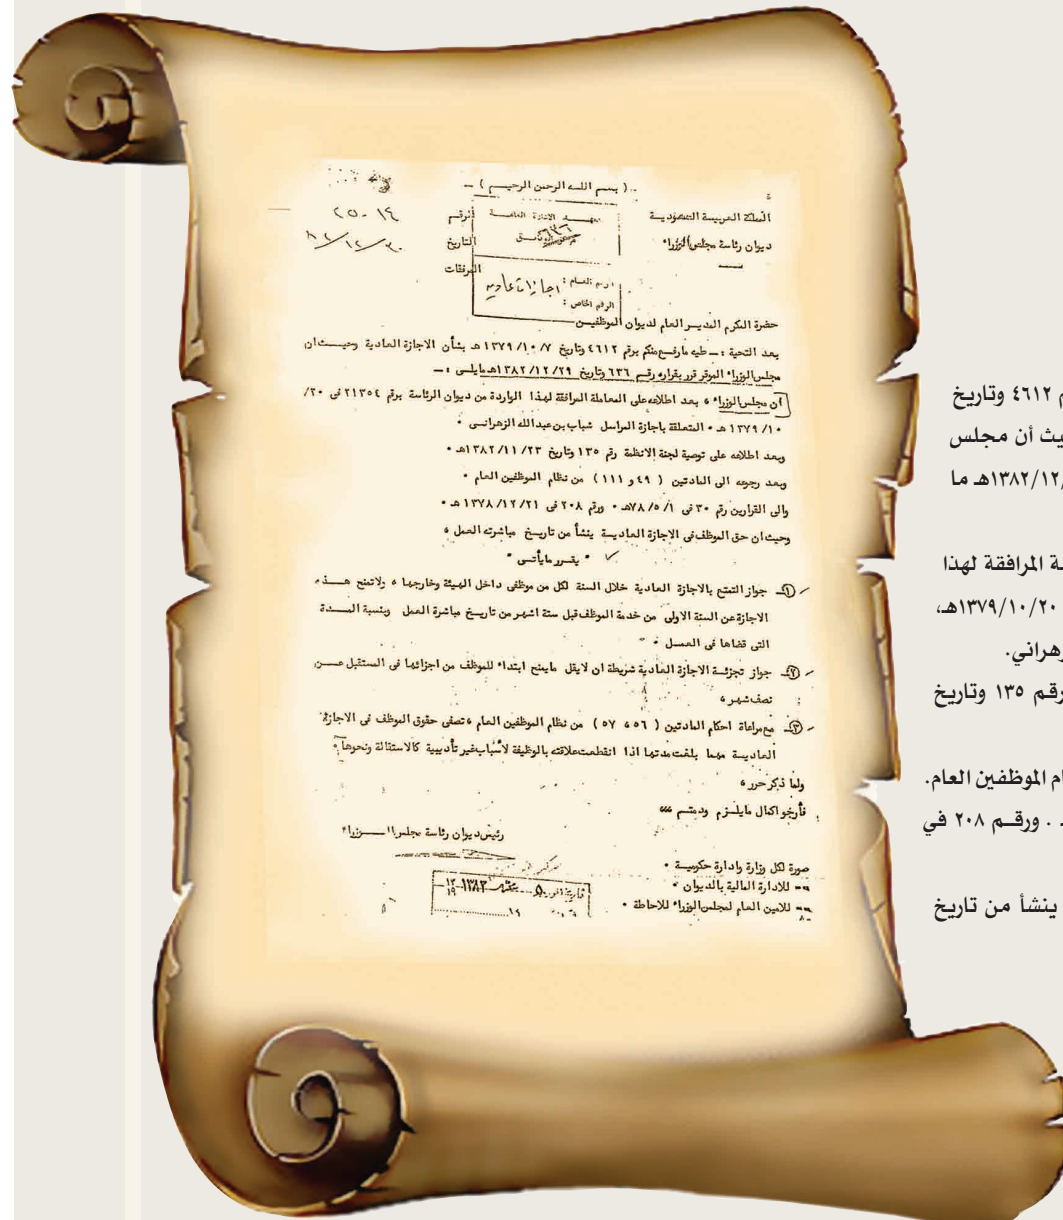 ( بسم اللـه الرحمن الرحيـــم )
المملكة العربيـة السعوديـة
ديوان رئاسة مجلس الوزراء
الرقـم ٢٥٠١٤
التاريخ ٨٢/١٢/٣٠
المرفقات
معهـــد الادارة العامـــة
الرقم العـام : اجازات عادية
الرقم الخاص :
حضرة المكرم المديـر العام لديوان الموظفيـن
بعد التحية :ــ طيه مارفـع منكم برقم ٤٦١٢ وتاريخ ١٣٧٩/١٠/٧ هـ بشأن الاجازة العادية وحيــث ان
مجلس الوزراء الموقر قرر بقراره رقـم ٦٣٦ وتاريخ ١٣٨٢/١٢/٢٩هـ مايلـى :ــ
ان مجلس الوزراء ، بعد اطلاعه على المعاملة المرافقة لهذا الواردة من ديوان الرئاسة برقم ٢١٣٥٤ فى ٢٠/
١٣٧٩/١٠ هـ ٠ المتعلقة باجازة المراسل شباب بن عبدالله الزهرانـى ٠
وبعد اطلاعه على توصية لجنة الانظمة رقم ١٣٥ وتاريخ ١٣٨٢/١١/٢٣هـ ٠
وبعد رجوعه الى المادتين ( ٤٩ و ١١١ ) من نظام الموظفين العام ٠
والى القرارين رقم ٣٠ فى ٧٨/٥/١هـ ٠ ورقم ٢٠٨ فى ١٣٧٨/١٢/٢١ هـ ٠
وحيث ان حق الموظف فى الاجازة العاديـــة ينشأ من تاريـخ مباشرته العمل ،
" يقــرر مايأتــى "
١ـ جواز التمتع بالاجازة العادية خلال السنة لكل من موظفى داخل الهيئة وخارجها ، ولاتمنح هــذه
الاجازة عن السنة الاولى من خدمة الموظف قبل ستة اشهر من تاريـخ مباشرة العمل وبنسبة المــدة
التى قضاها فى العمـل ٠
٢ـ جواز تجزئـة الاجازة العادية شريطة ان لايقل مايمنح ابتداء للموظف من اجزائها فى المستقبل عــن
نصف شهر ،
٣ـ مع مراعاة احكام المادتين ( ٥٦ ، ٥٧ ) من نظام الموظفين العام ، تصفى حقوق الموظف فى الاجازة
العاديـة مهما بلغت مدتها اذا انقطعت علاقته بالوظيفة لأسباب غير تأديبية كالاستقالة ونحوها ،
ولما ذكر حرر ،
فأرجو اكمال مايلـزم ودمتــم ،،،
رئيس ديوان رئاسة مجلس الــوزراء
صورة لكل وزارة وادارة حكوميـة ٠
== للادارة المالية بالديوان ٠
== للامين العام لمجلس الوزراء للاحاطة ٠
٤٦١٢ وتاريخ
أن مجلس
١٣٨٢/١٢/ هـ ما
المرافقة لهذا
١٣٧٩/١٠/٢٠هـ،
رقم ١٣٥ وتاريخ
الموظفين العام.
. ورقــم ٢٠٨ في
ينشأ من تاريخ